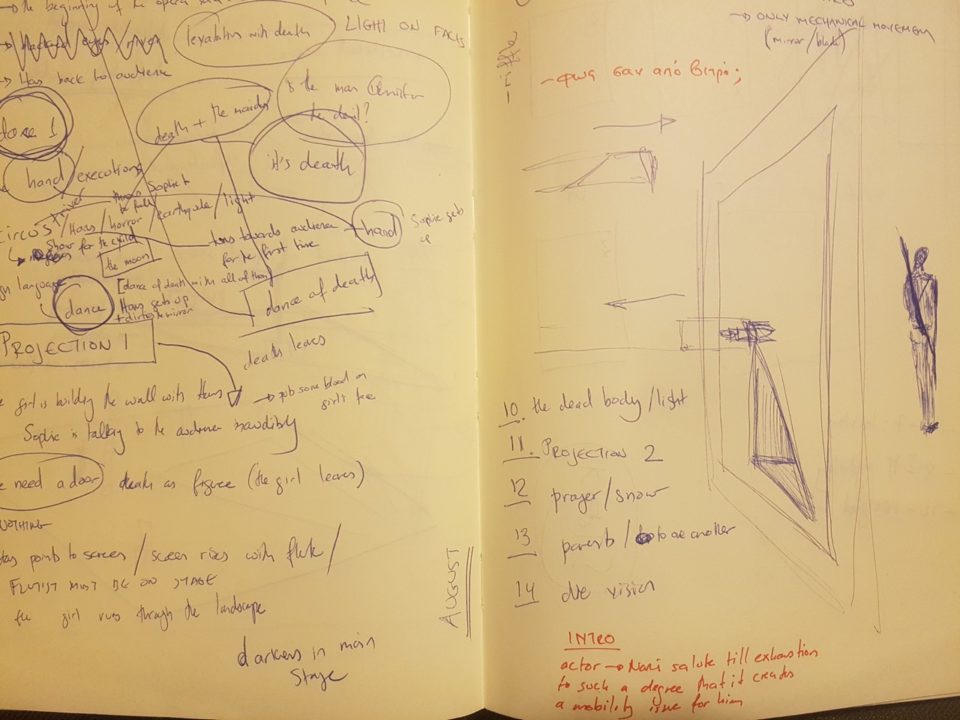 → the beginning of the opera
LIGHT ON FACES
levitation with death
→ Hans back to audience
is the man
the devil?
death + the maiden
dance 1
it's death
hand / executions
Sophie
horror / earthquake / light
Circus / Hans /
show for the child
the moon
turns towards audience
for the first time
hand
Sophie gets
up
sign language
dance
[dance of death with all of them
Hans gets up
+ mirror
dance of death
PROJECTION 1
death leaves
girl is building the wall with Hans
→ rub some blood on
girl's face
Sophie is talking to the audience inaudibly
we need a door
death as figure (the girl leaves)
NOTHING
Hans points to screen / screen rises with flute /
FLUTIST MUST BE ON STAGE
the girl runs through the landscape
AUGUST
darkness in main
stage
→ ONLY MECHANICAL MOVEMENT
(mirror/blade)
- φως σαν από βιτρό;
10. the dead body / light
11. PROJECTION 2
12 prayer / snow
13 parents / to one another
14 vision
INTRO
actor → Nazi salute till exhaustion
to such a degree that it creates
a mobility issue for him